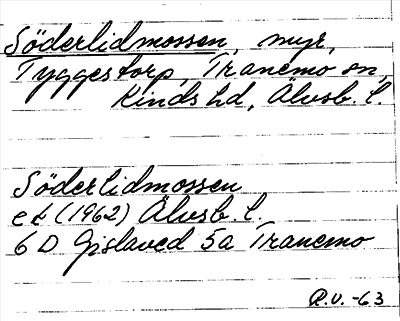 Söderlidmossen, myr,
Tyggestorp, Tranemo sn,
Kinds hd, Älvsb. l.
Söderlidmossen
ek (1962) Älvsb. l.
6 D Gislaved 5a Tranemo
R.V. -63